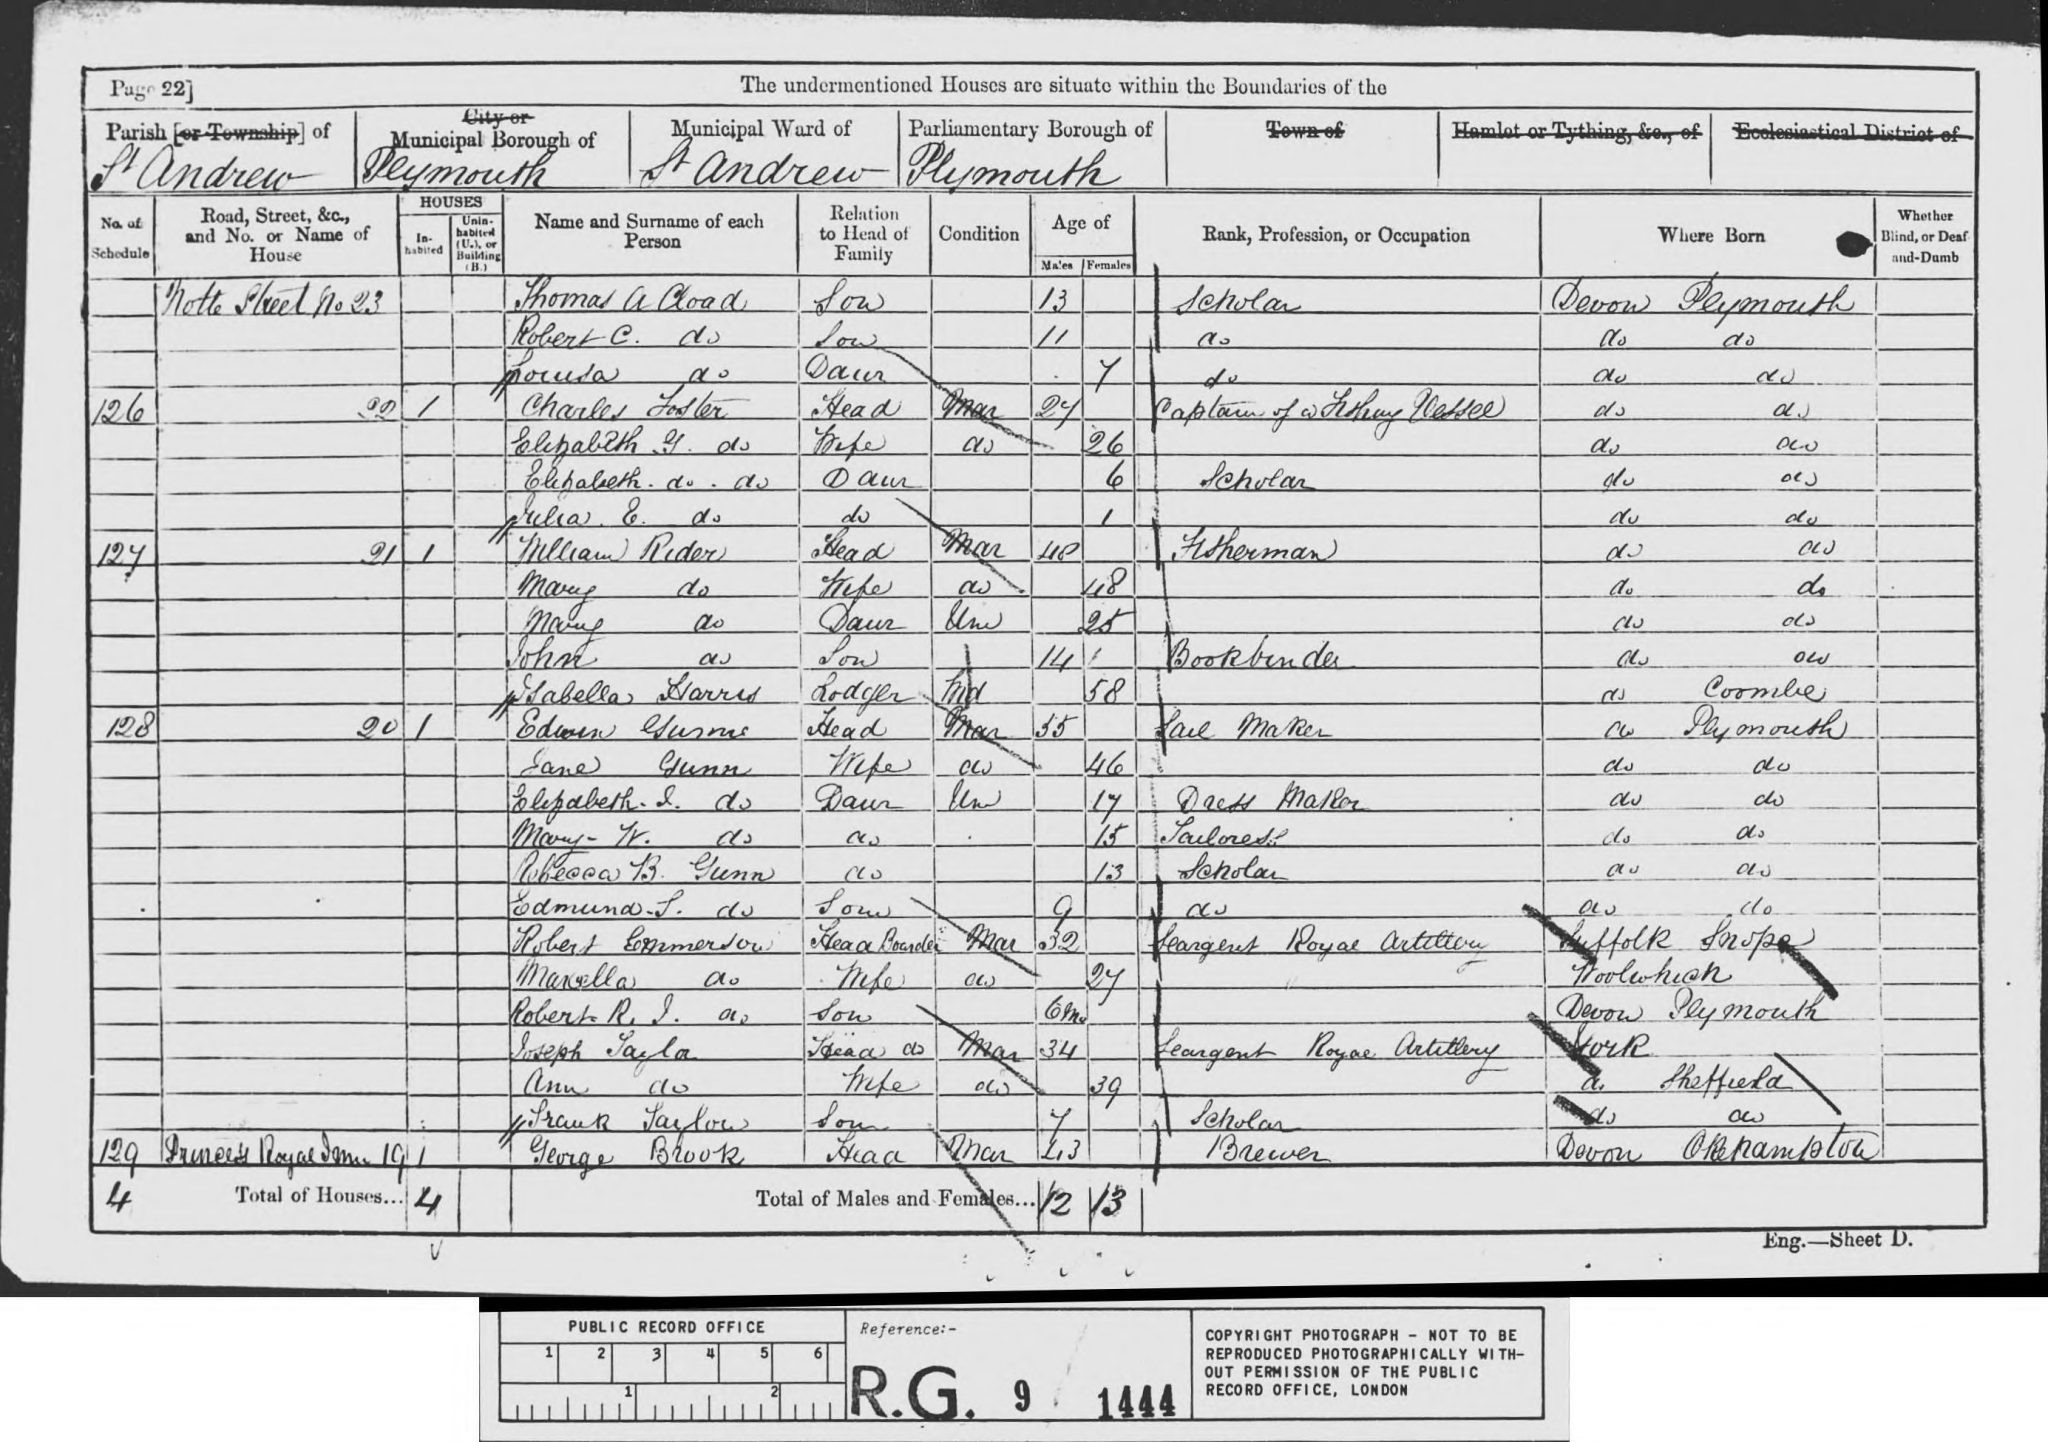 Page 22]
The undermentioned Houses are situate within the Boundaries of the
Parish [or Township] of
City or
Municipal Borough of
Municipal Ward of
Parliamentary Borough of
Town of
Hamlet or Tything, &c., of
Ecclesiastical District of
St Andrew
Plymouth
St Andrew
Plymouth
No. of Schedule
Road, Street, &c., and No. or Name of House
HOUSES
In-habited
Unin-habited (U.), or Building (B.)
Name and Surname of each Person
Relation to Head of Family
Condition
Age of
Males
Females
Rank, Profession, or Occupation
Where Born
Whether Blind, or Deaf-and-Dumb
Notte Street No 23 Thomas A Cload Son 13 Scholar Devon Plymouth
Robert C. do Son 11 do do do
Louisa do Daur 7 do do do
126 22 1 Charles Foster Head Mar 27 Captain of a Fishing Vessel do do
Elizabeth G. do Wife do 26 do do
Elizabeth do do Daur 6 Scholar do do
Julia E. do do 1 do do
127 21 1 William Rider Head Mar 48 Fisherman do do
Mary do Wife do 48 do do
Mary do Daur Un 25 do do
John do Son 14 Bookbinder do do
Isabella Harris Lodger Wd 58 do Coombe
128 20 1 Edwin Head Mar 55 Sail Maker do Plymouth
Jane Gunn Wife do 46 do do
Elizabeth J. do Daur Un 17 Dress Maker do do
Mary W. do do 15 Tailoress do do
Rebecca B. Gunn do 13 Scholar do do
Edmund S. do Son 9 do do do
Robert Emmerson Head Boarder Mar 32 Seargent Royal Artillery Suffolk Snope
Marcella do Wife do 27 Woolwhich
Robert R. J. do Son 6 Mo Devon Plymouth
Joseph Tayla Head do Mar 34 Seargent Royal Artillery York
Ann do Wife do 39 do Sheffield
Frank Taylor Son 7 Scholar do do
129 Princess Royal Inn 19 1 George Brook Head Mar 43 Brewer Devon Okehampton
4 Total of Houses... 4 Total of Males and Females... 12 13
Eng.—Sheet D.
PUBLIC RECORD OFFICE
1 2 3 4 5 6
1 2
Reference:-
R.G. 9 1444
COPYRIGHT PHOTOGRAPH - NOT TO BE
REPRODUCED PHOTOGRAPHICALLY WITH-
OUT PERMISSION OF THE PUBLIC
RECORD OFFICE, LONDON